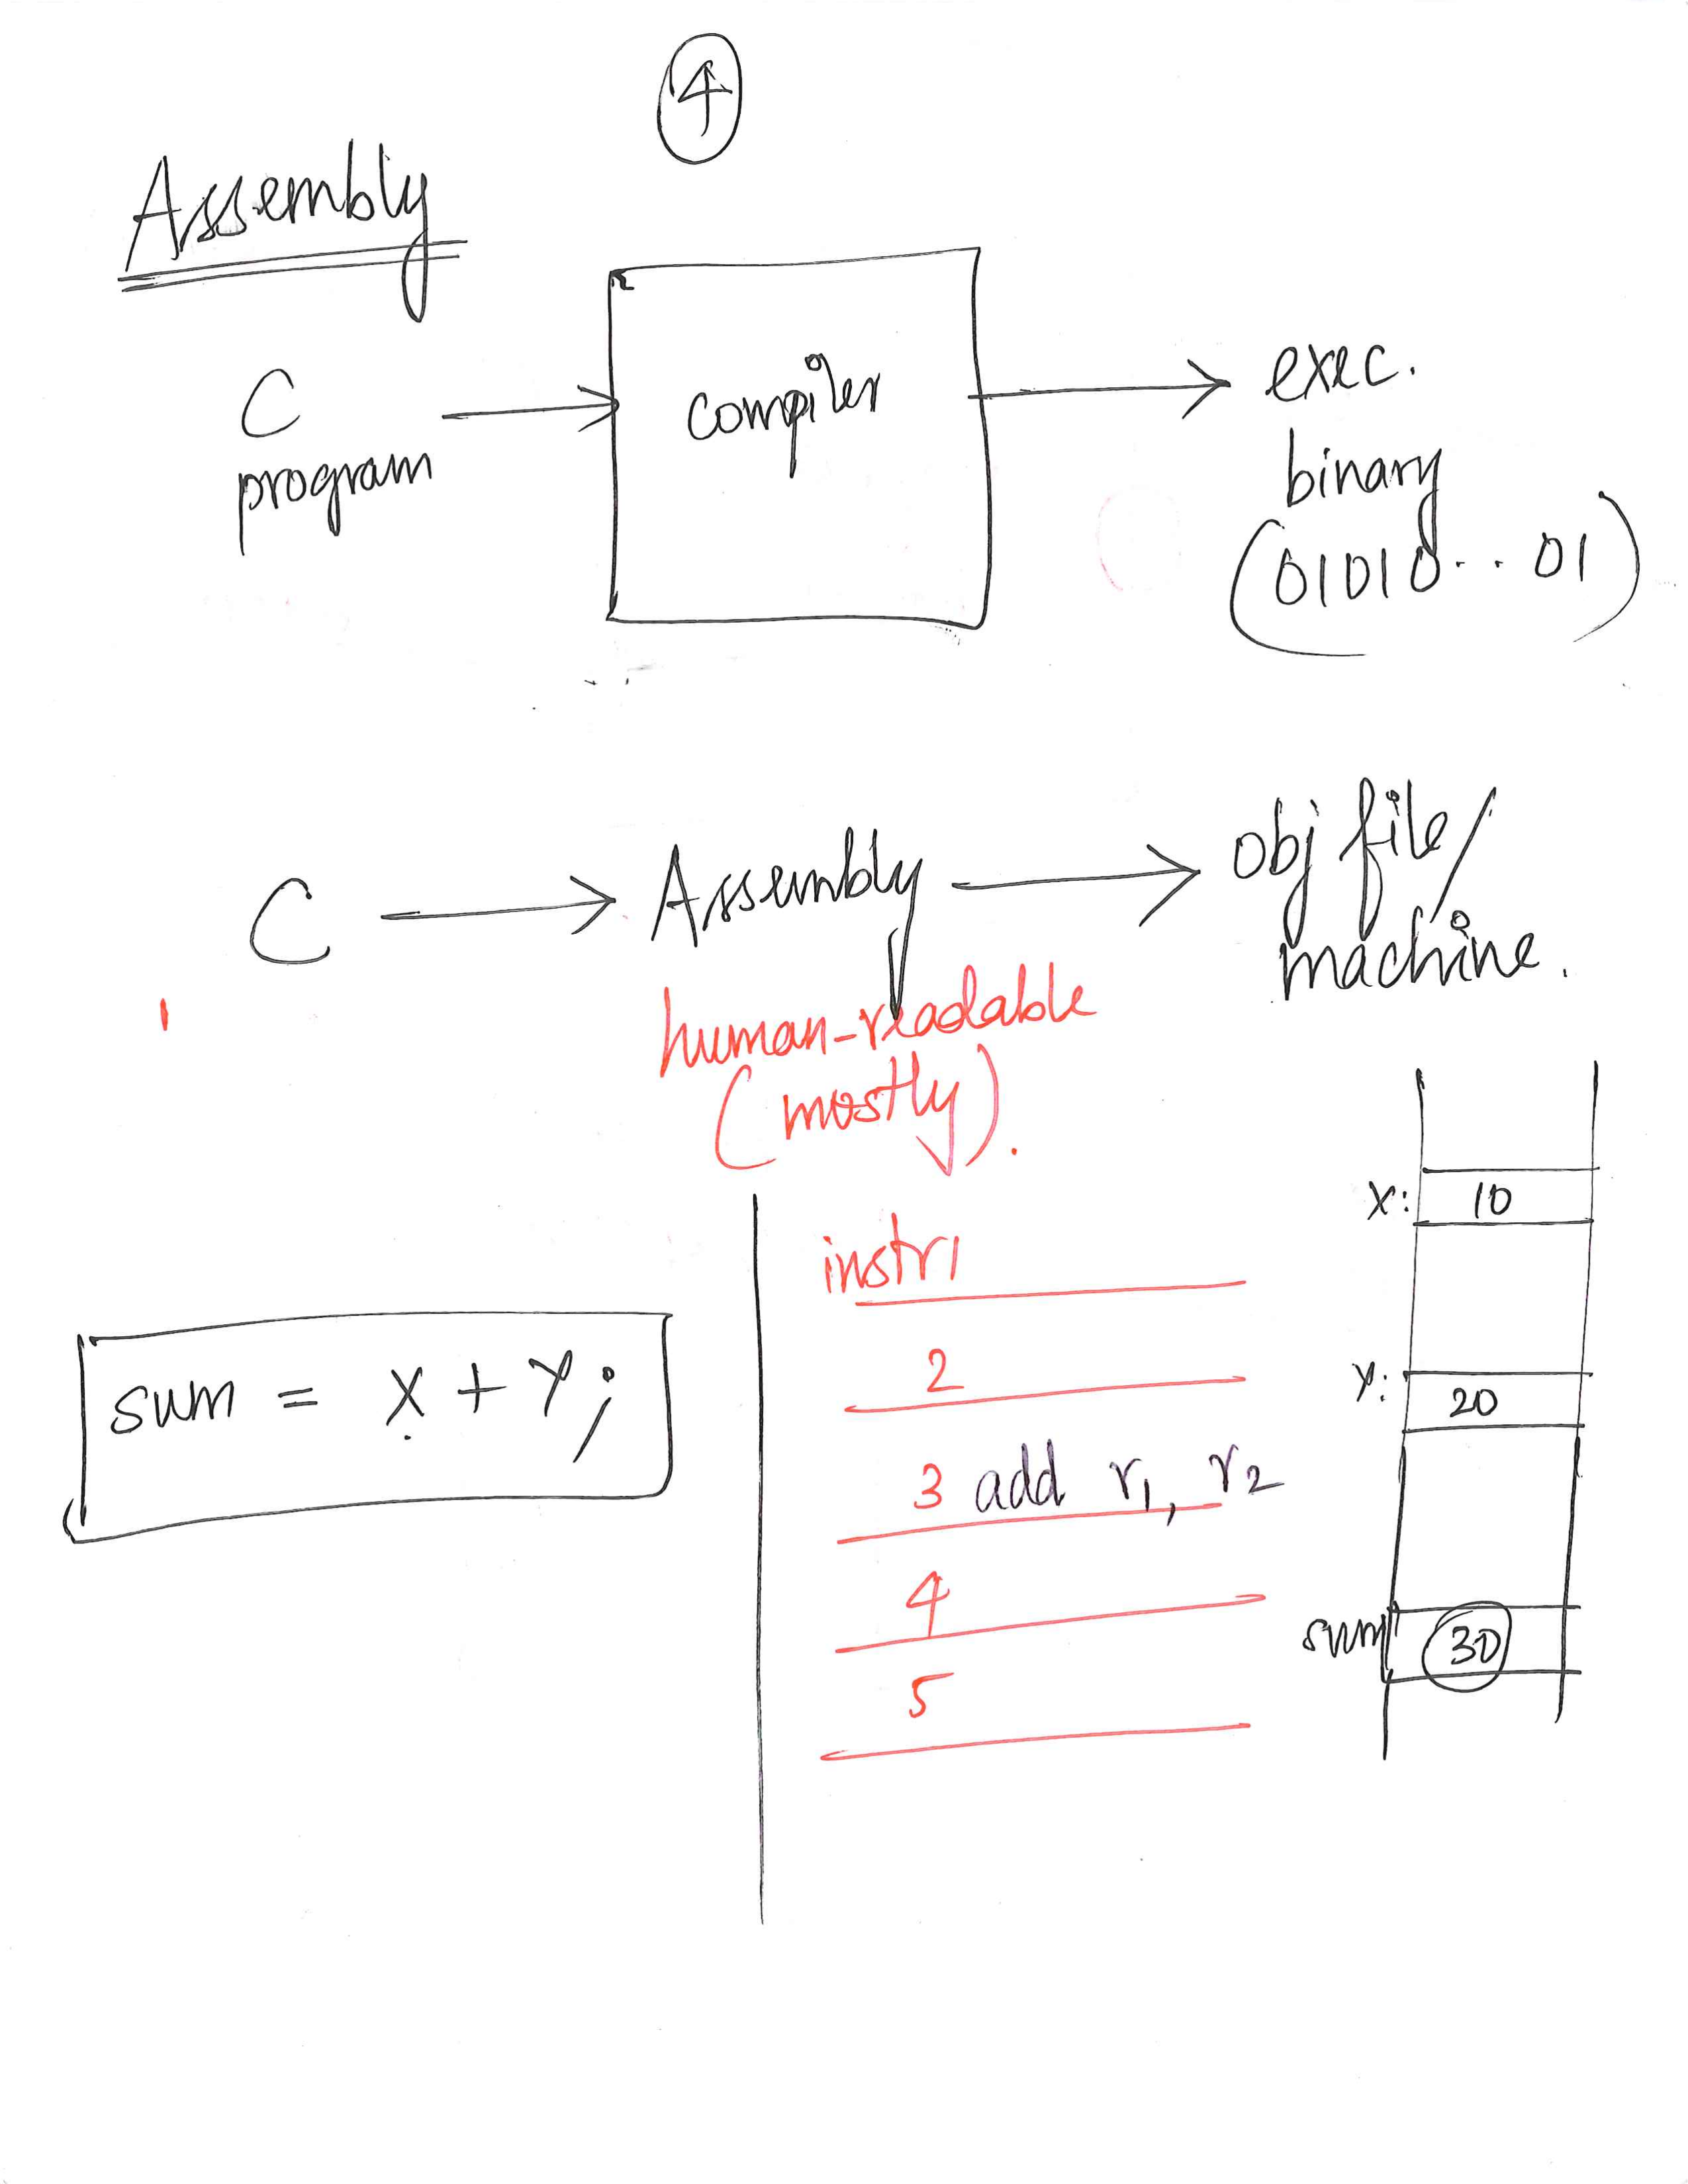 4
Assembly
C
program
compiler
exec.
binary
(01010...01)
C
Assembly
obj file/
machine.
human-readable
(mostly).
sum = x + y;
instr1
2
3 add r1, r2
4
5
x: 10
y: 20
sum 30